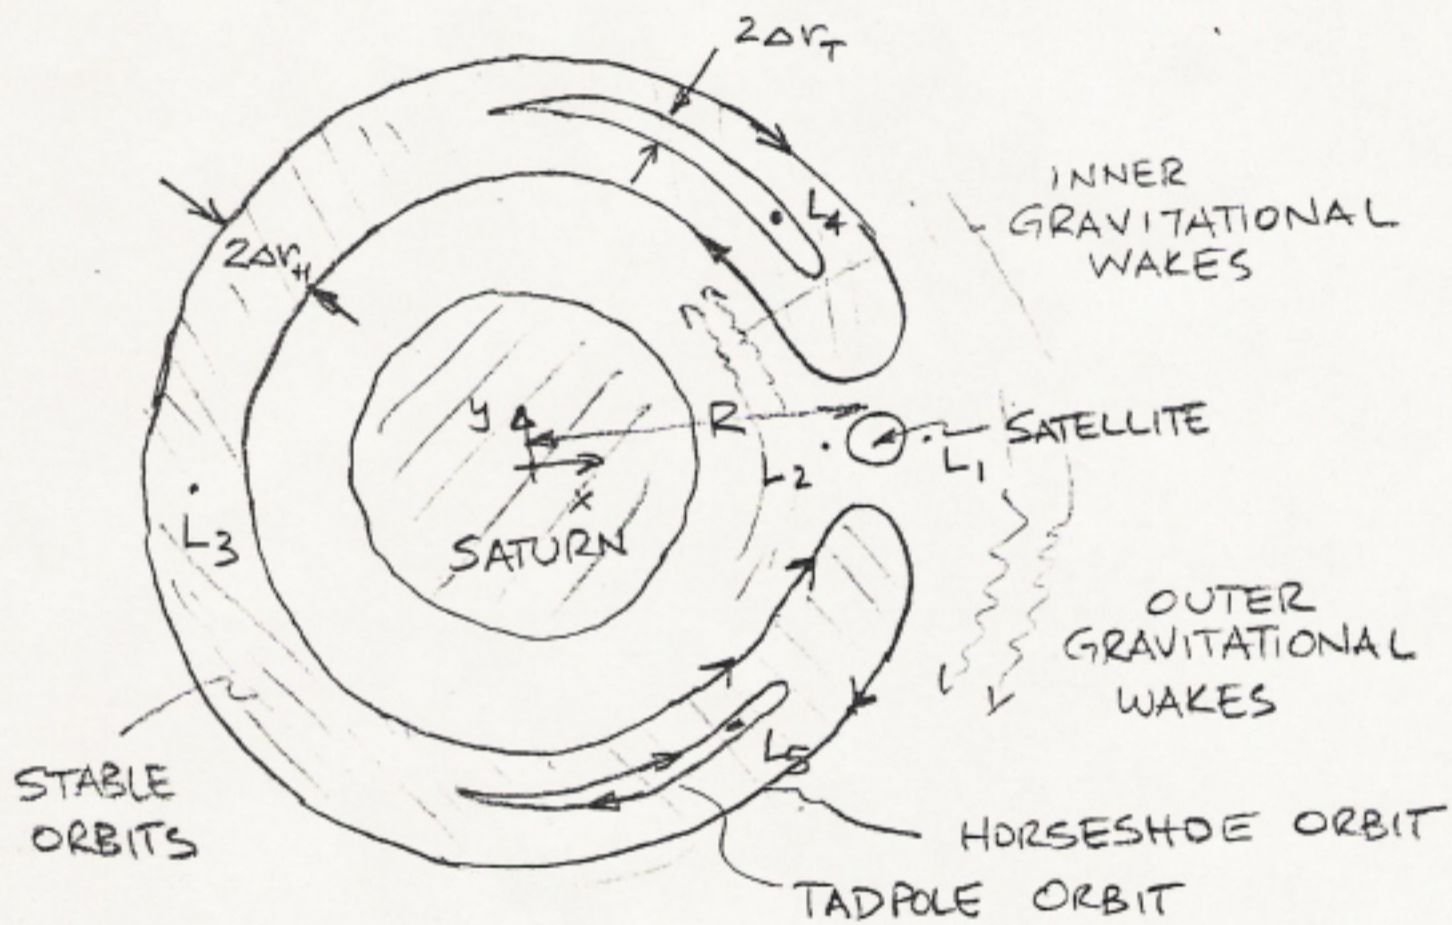 2Δr_T
INNER
GRAVITATIONAL
WAKES
L4
2Δr_H
y
R
SATELLITE
L2
L1
x
L3
SATURN
OUTER
GRAVITATIONAL
WAKES
L5
STABLE
ORBITS
HORSESHOE ORBIT
TADPOLE ORBIT